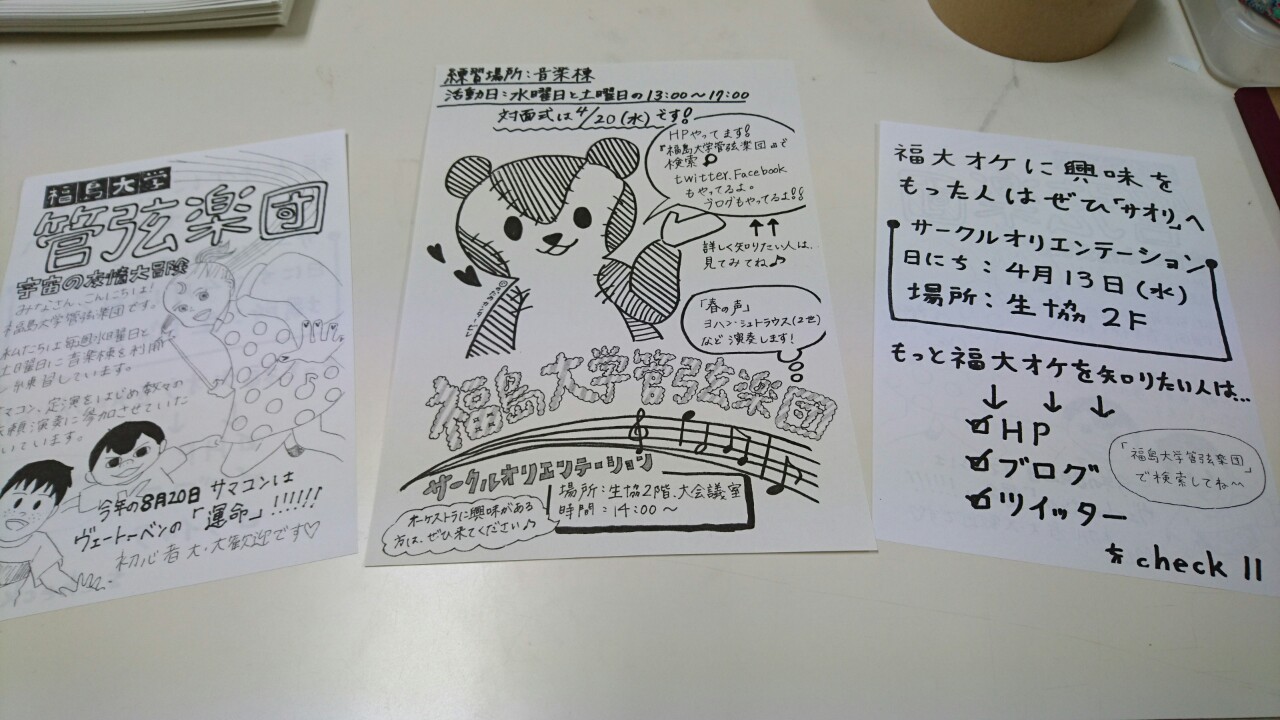 福島大学
管弦楽団
宇宙の友情大冒険
みなさん、こんにちは!
福島大学管弦楽団です。
私たちは毎週水曜日と
土曜日に音楽棟を利用
練習しています。
サマコン、定演をはじめ数々の
依頼演奏に参加させていた
います。
今年の8月20日 サマコンは
ヴェートーベンの「運命」!!!!!!
初心者大・大歓迎です♡
練習場所:音楽棟
活動日:水曜日と土曜日の13:00~17:00
対面式は4/20(水)です!
HPやってます!
『福島大学管弦楽団』で
検索
twitter,Facebook
もやってるよ。
ブログもやってるよ!!
↑↑
詳しく知りたい人は、
見てみてね♪
「春の声」
ヨハン・シュトラウス(2世)
など演奏します!
福島大学管弦楽団
サークルオリエンテーション
場所:生協2階、大会議室
時間:14:00~
オーケストラに興味がある
方は、ぜひ来てください♪
福大オケに興味を
もった人はぜひ「サオリ」へ
サークルオリエンテーション
日にち:4月13日(水)
場所:生協2F
もっと福大オケを知りたい人は...
↓ ↓ ↓
☑HP
☑ブログ
☑ツイッター
「福島大学管弦楽団」
で検索してね~
を check !!